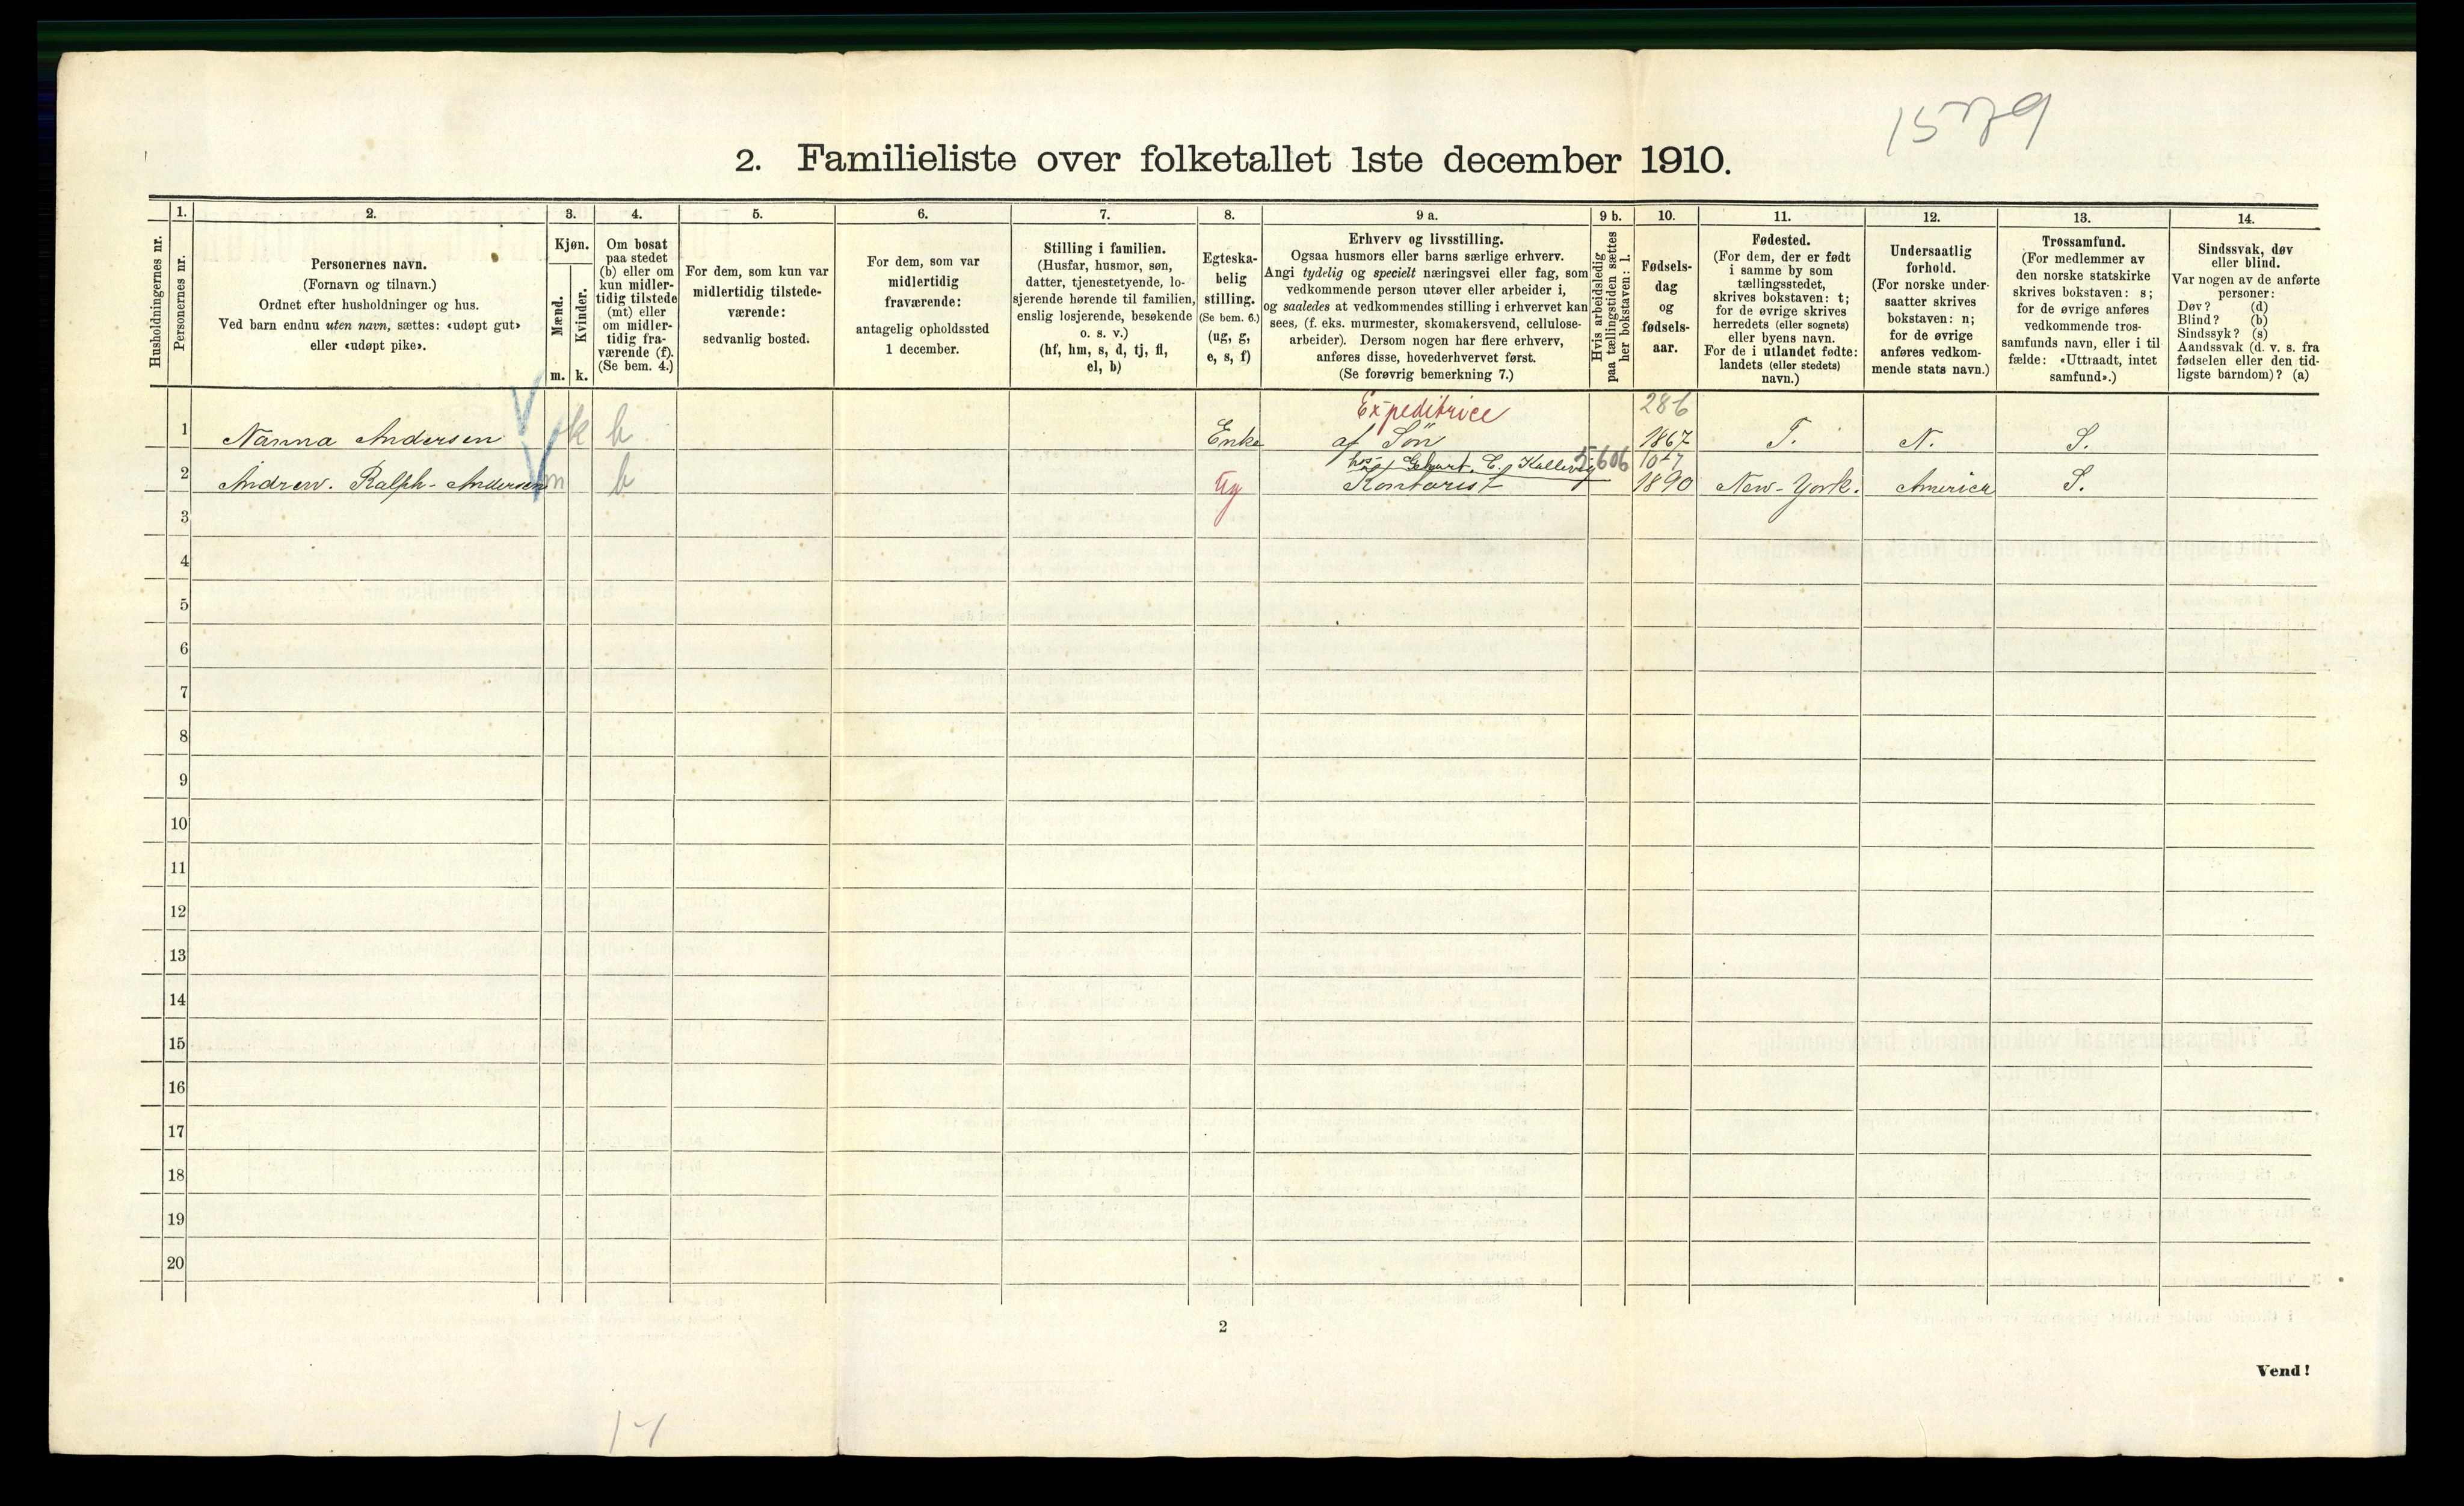 1579
2. Familieliste over folketallet 1ste december 1910.
1. 2. 3. 4. 5. 6. 7. 8. 9 a. 9 b. 10. 11. 12. 13. 14.
Husholdningernes nr.
Personernes nr.
Personernes navn.
(Fornavn og tilnavn.)
Ordnet efter husholdninger og hus.
Ved barn endnu uten navn, sættes: «udøpt gut»
eller «udøpt pike».
Kjøn.
Mænd.
Kvinder.
m. k.
Om bosat
paa stedet
(b) eller om
kun midler-
tidig tilstede
(mt) eller
om midler-
tidig fra-
værende (f).
(Se bem. 4.)
For dem, som kun var
midlertidig tilstede-
værende:
sedvanlig bosted.
For dem, som var
midlertidig
fraværende:
antagelig opholdssted
1 december.
Stilling i familien.
(Husfar, husmor, søn,
datter, tjenestetyende, lo-
sjerende hørende til familien,
enslig losjerende, besøkende
o. s. v.)
(hf, hm, s, d, tj, fl,
el, b)
Egteska-
belig
stilling.
(Se bem. 6.)
(ug, g,
e, s, f)
Erhverv og livsstilling.
Ogsaa husmors eller barns særlige erhverv.
Angi tydelig og specielt næringsvei eller fag, som
vedkommende person utøver eller arbeider i,
og saaledes at vedkommendes stilling i erhvervet kan
sees, (f. eks. murmester, skomakersvend, cellulose-
arbeider). Dersom nogen har flere erhverv,
anføres disse, hovederhvervet først.
(Se forøvrig bemerkning 7.)
Hvis arbeidsledig
paa tællingstiden sættes
her bokstaven: l.
Fødsels-
dag
og
fødsels-
aar.
Fødested.
(For dem, der er født
i samme by som
tællingsstedet,
skrives bokstaven: t;
for de øvrige skrives
herredets (eller sognets)
eller byens navn.
For de i utlandet fødte:
landets (eller stedets)
navn.)
Undersaatlig
forhold.
(For norske under-
saatter skrives
bokstaven: n;
for de øvrige
anføres vedkom-
mende stats navn.)
Trossamfund.
(For medlemmer av
den norske statskirke
skrives bokstaven: s;
for de øvrige anføres
vedkommende tros-
samfunds navn, eller i til-
fælde: «Uttraadt, intet
samfund».)
Sindssvak, døv
eller blind.
Var nogen av de anførte
personer:
Døv? (d)
Blind? (b)
Sindssyk? (s)
Aandssvak (d. v. s. fra
fødselen eller den tid-
ligste barndom)? (a)
Expeditrice 286
1 Nanna Andersen k b Enke af Søn 1867 T. N. S.
5606
2 Andrew. Ralph-Andersen m b ug Kontorist 1890 New-York. America S.
3
4
5
6
7
8
9
10
11
12
13
14
15
16
17
18
19
20
2
Vend!